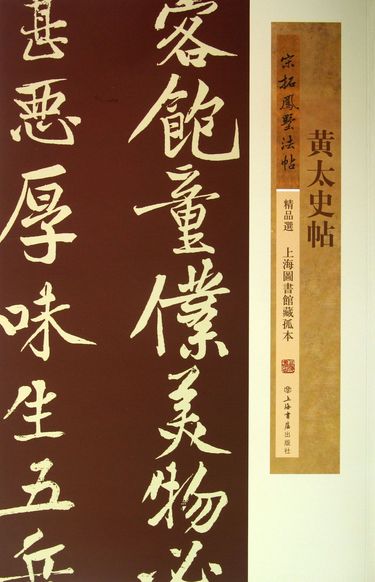 黄太史帖
宋拓鳳墅法帖
精品選 上海圖書館藏孤本
上海書店出版社
客飽童僕美物必
甚悪厚味生五兵